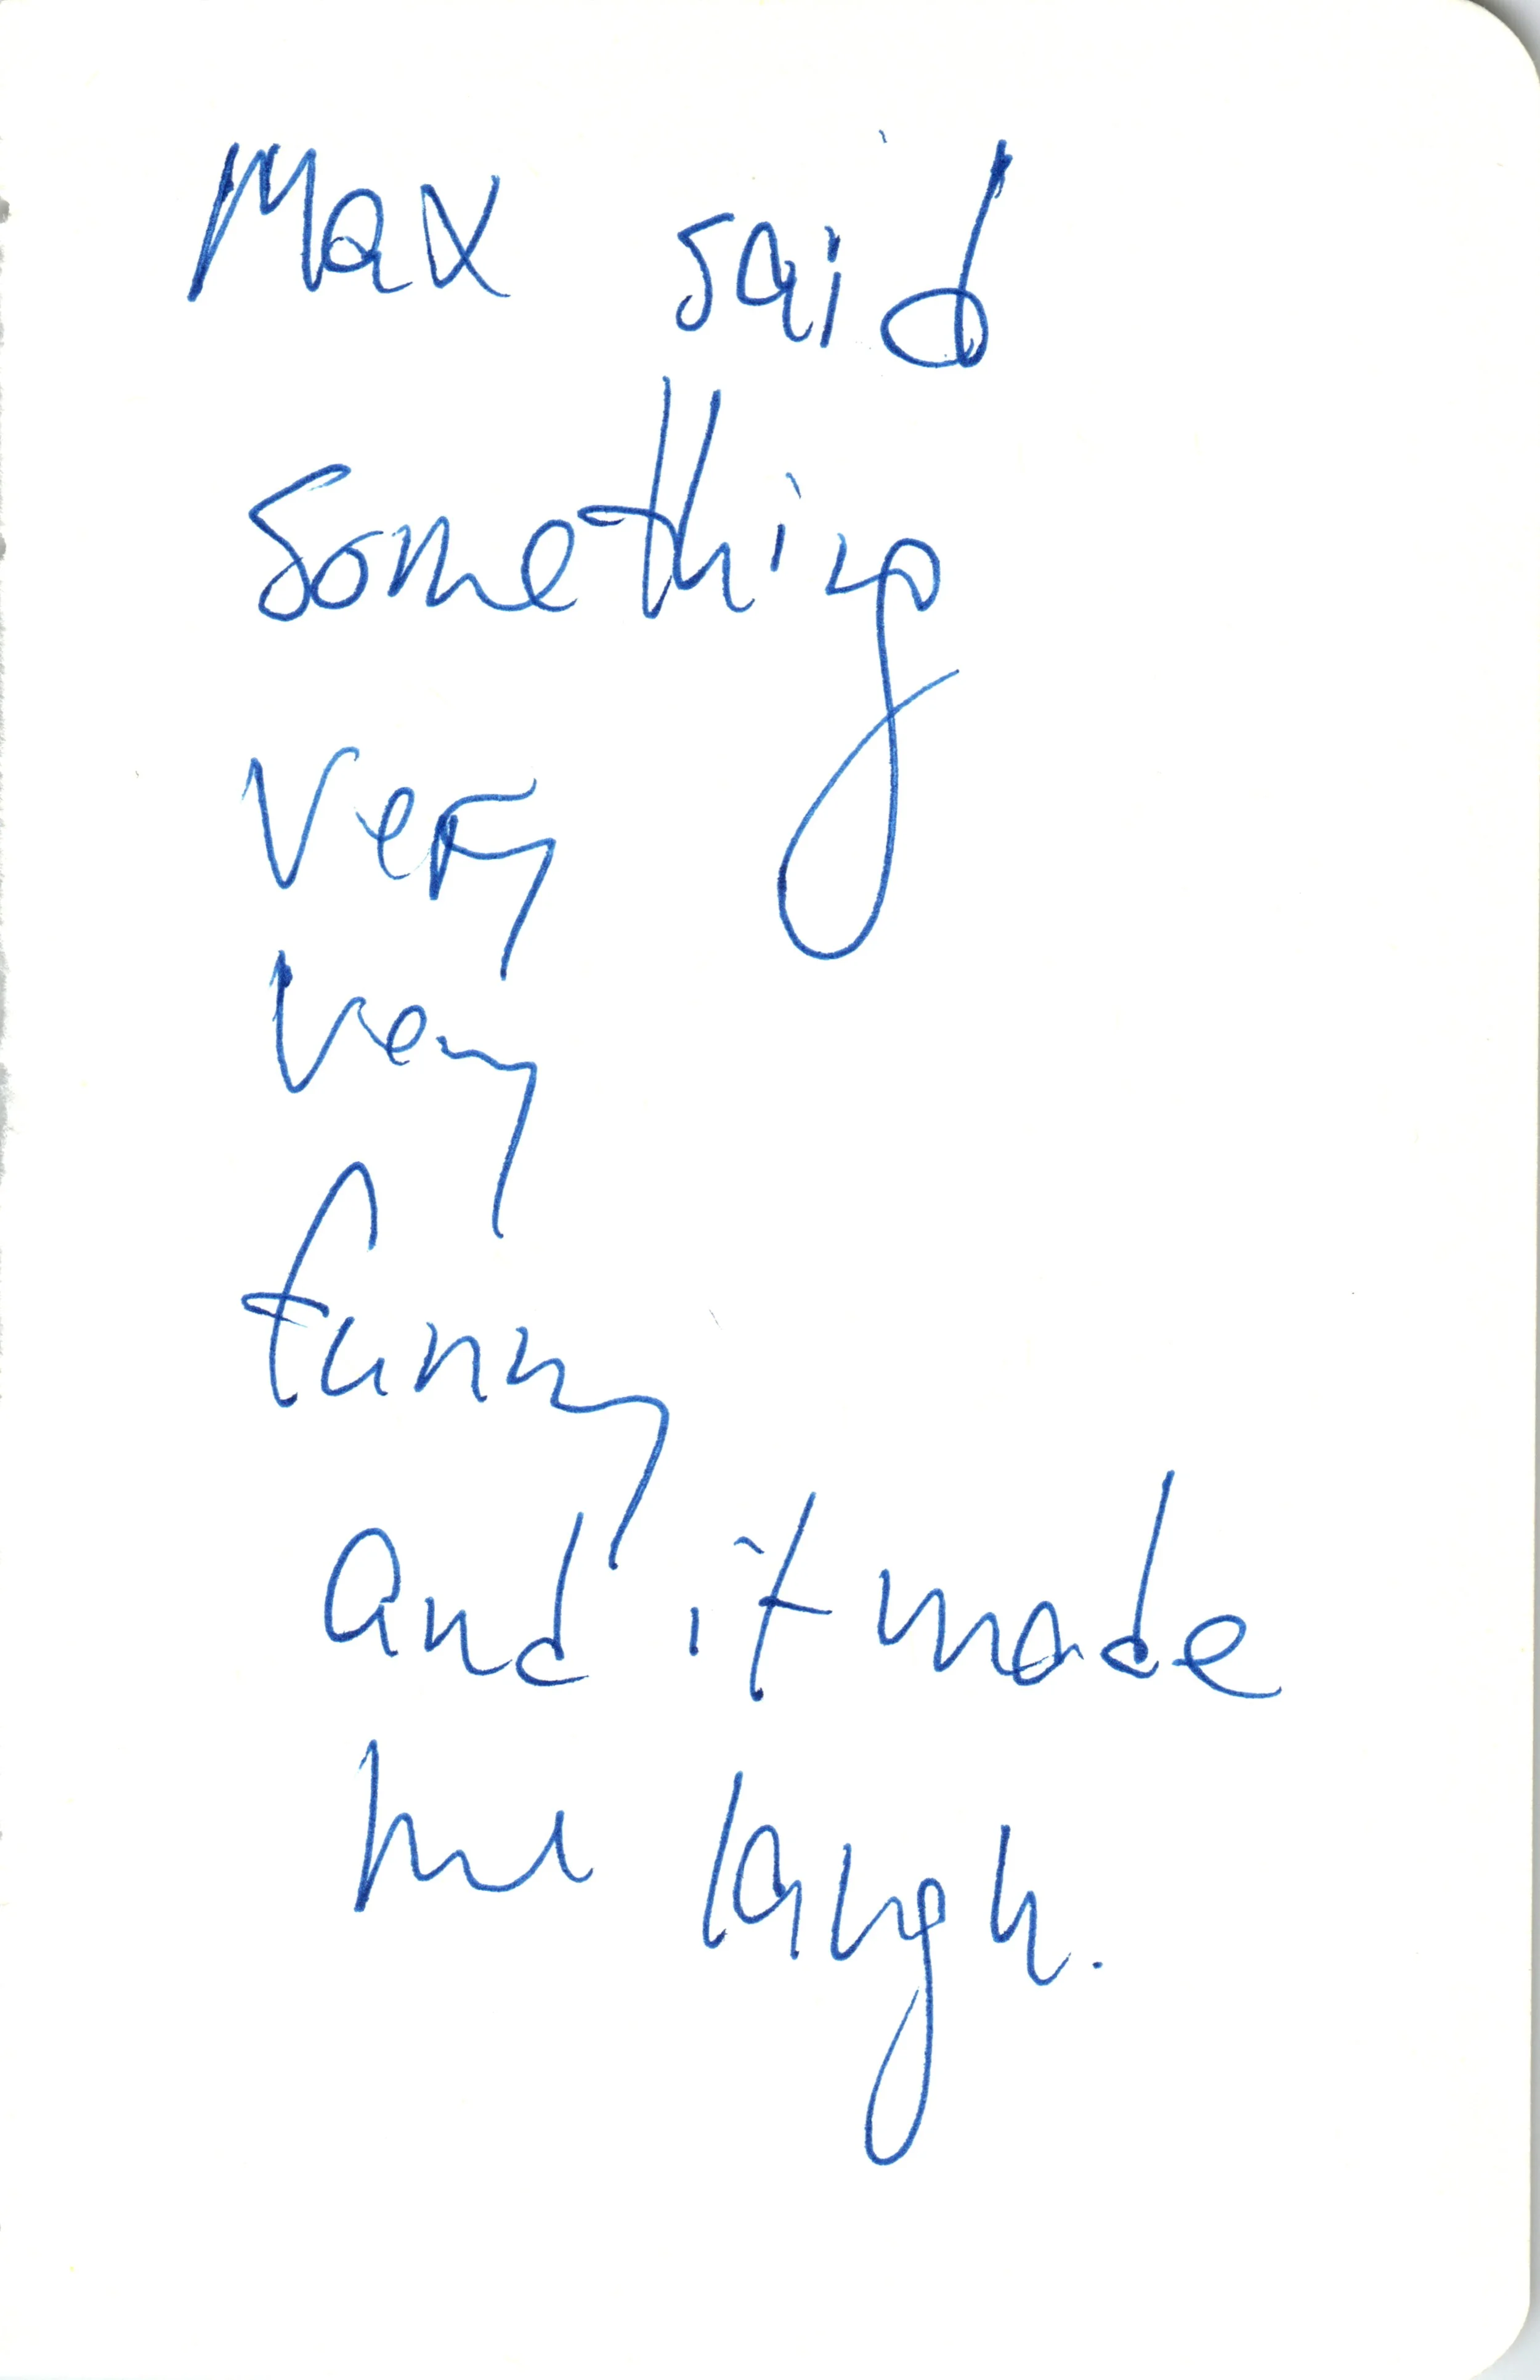 Max said
something
very
very
funny
and it made
me laugh.